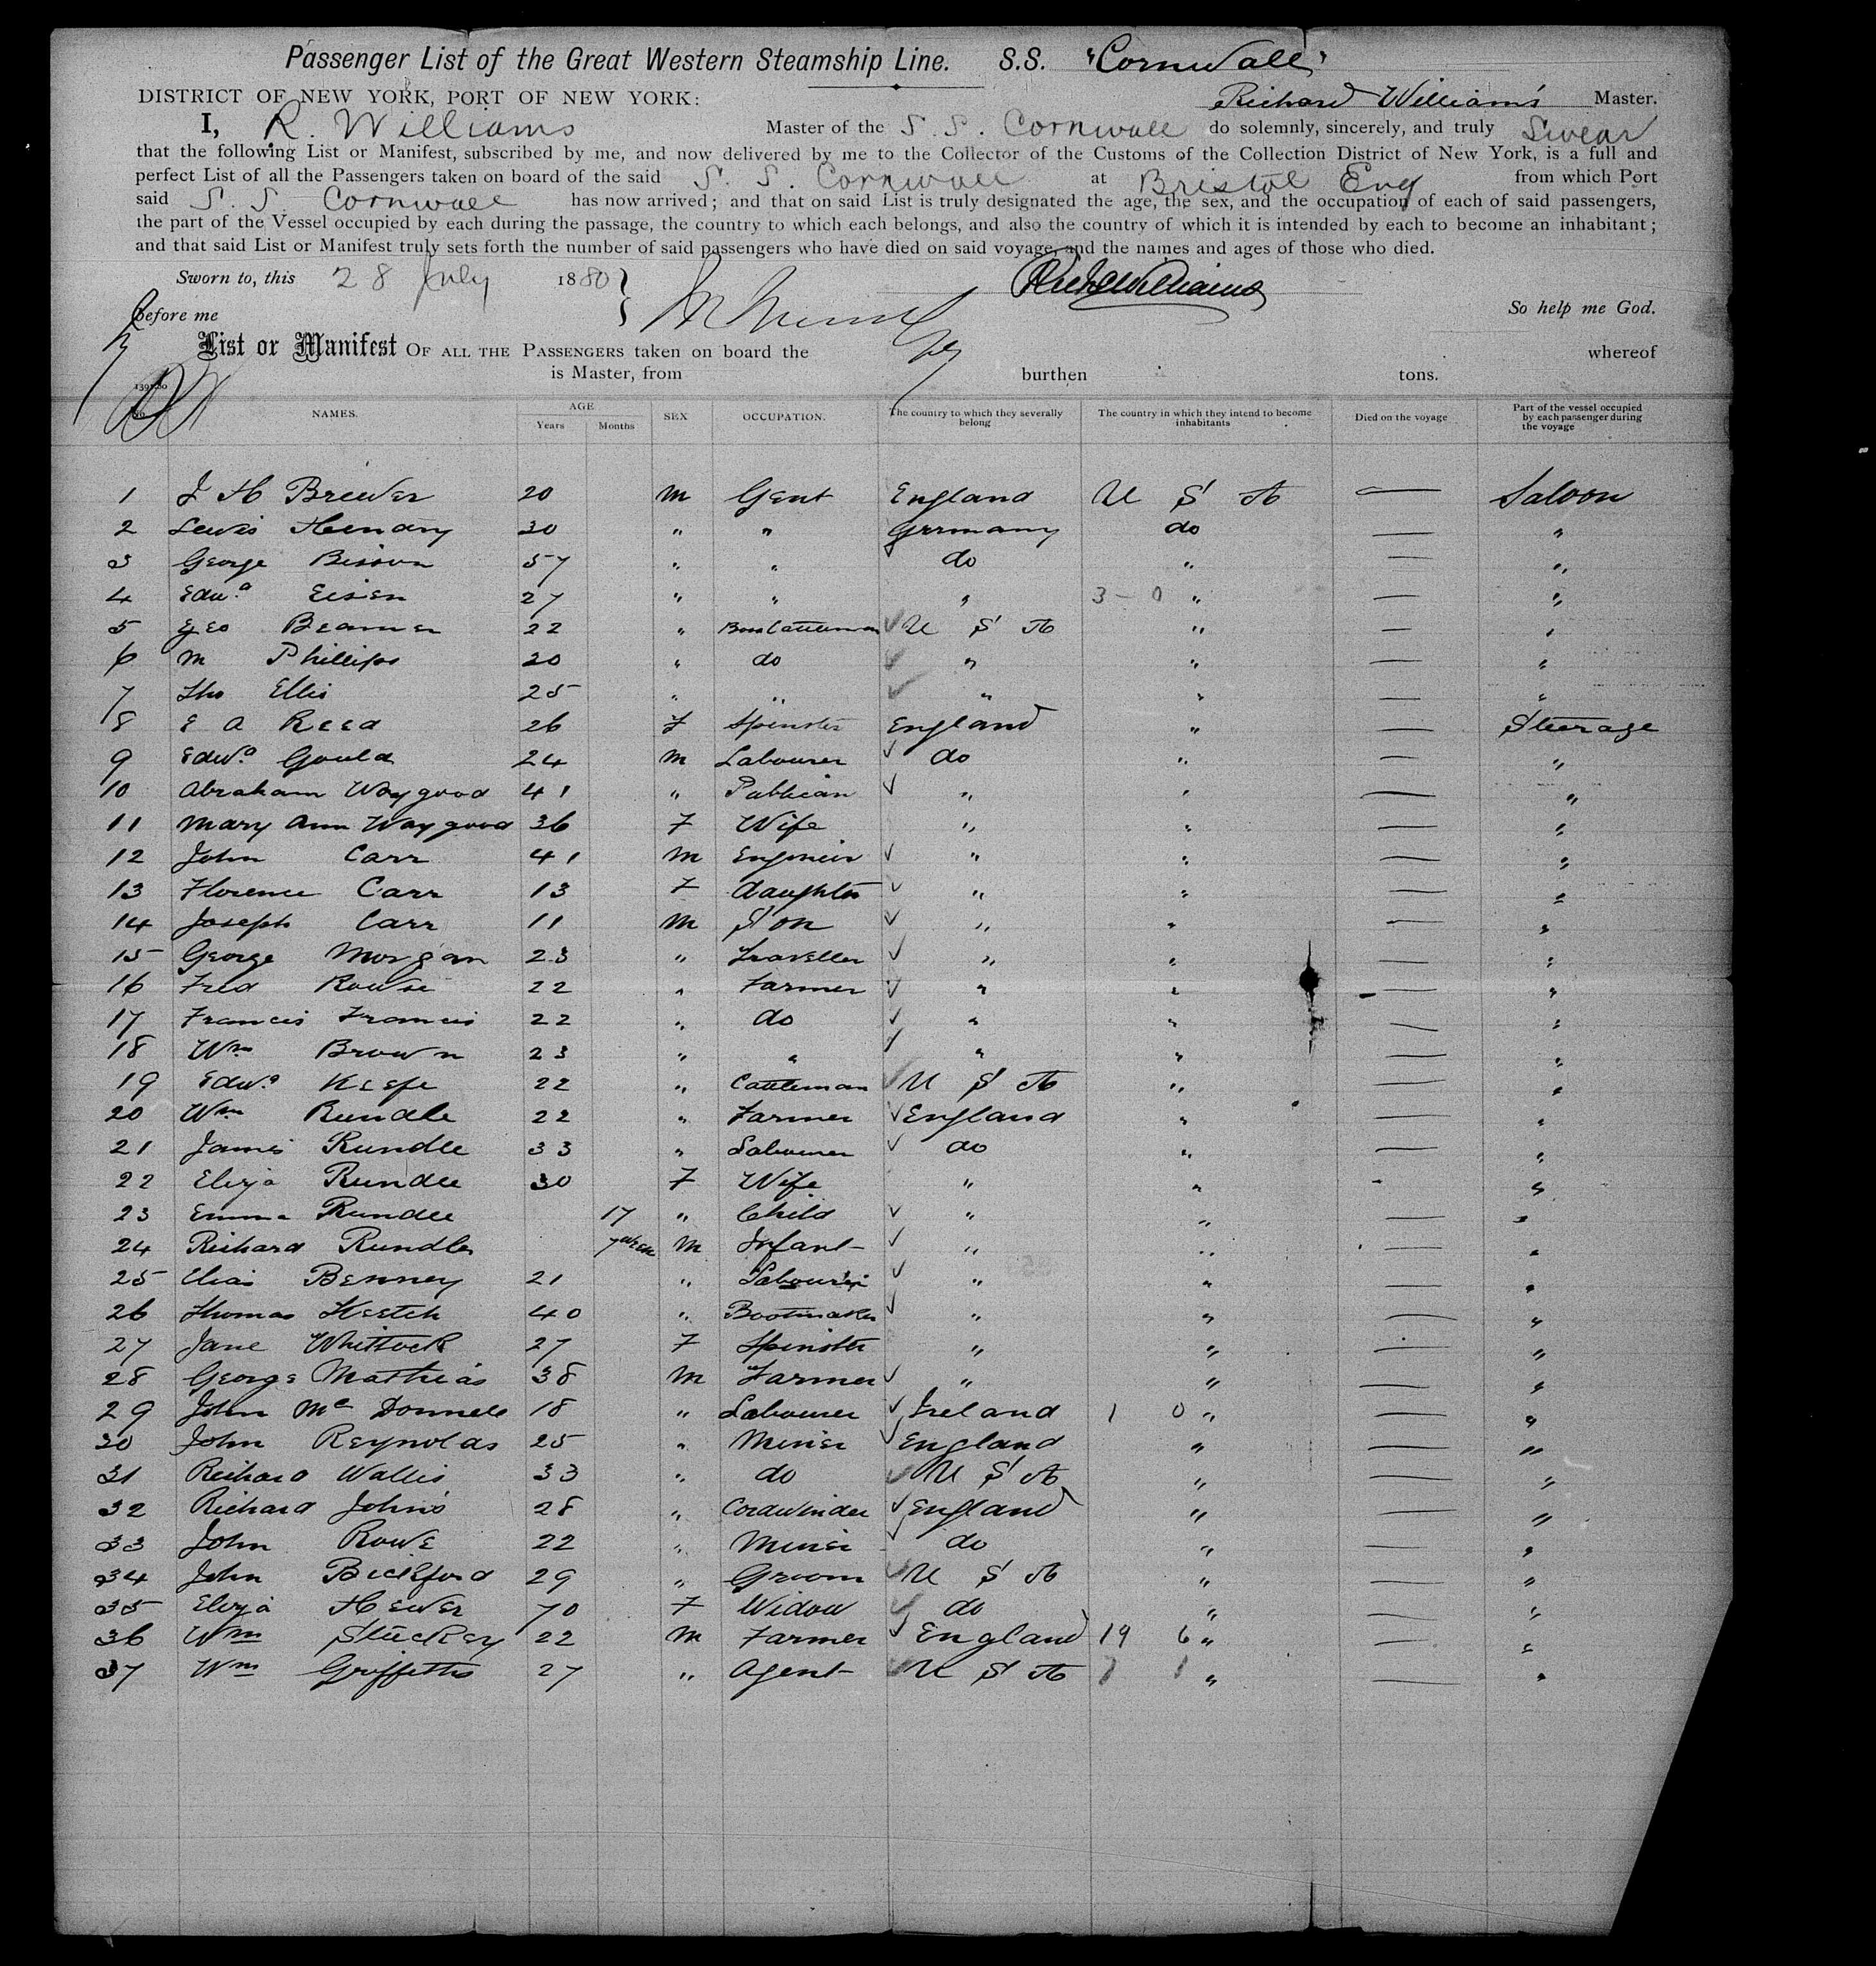 Passenger List of the Great Western Steamship Line. S.S. "Cornwall"
DISTRICT OF NEW YORK, PORT OF NEW YORK: Richard Williams Master.
I, R. Williams Master of the S. S. Cornwall do solemnly, sincerely, and truly Swear
that the following List or Manifest, subscribed by me, and now delivered by me to the Collector of the Customs of the Collection District of New York, is a full and
perfect List of all the Passengers taken on board of the said S. S. Cornwall at Bristol Eng from which Port
said S. S. Cornwall has now arrived; and that on said List is truly designated the age, the sex, and the occupation of each of said passengers,
the part of the Vessel occupied by each during the passage, the country to which each belongs, and also the country of which it is intended by each to become an inhabitant;
and that said List or Manifest truly sets forth the number of said passengers who have died on said voyage, and the names and ages of those who died.
Sworn to, this 28 July 1880 } Richd Williams
Before me So help me God.
List or Manifest OF ALL THE PASSENGERS taken on board the whereof
is Master, from burthen tons.
No. NAMES. AGE Years Months SEX OCCUPATION. The country to which they severally belong The country in which they intend to become inhabitants Died on the voyage Part of the vessel occupied by each passenger during the voyage
1 J H Brewer 20 M Gent England U S A — Saloon
2 Lewis Hendry 30 " " Germany do — "
3 George Bisson 57 " " do " — "
4 Edwd Eisen 27 " " " 3 - 0 " — "
5 Geo Beamer 22 " Boss Cattleman U S A " — "
6 M Phillips 20 " do " " — "
7 Tho Ellis 25 " " " " — "
8 E A Reed 26 F Spinster England " — Steerage
9 Edwd Gould 24 M Labourer do " — "
10 Abraham Waygood 41 " Publican " " — "
11 Mary Ann Waygood 36 F Wife " " — "
12 John Carr 41 M Engineer " " — "
13 Florence Carr 13 F daughter " " — "
14 Joseph Carr 11 M Son " " — "
15 George Morgan 23 " Traveller " " — "
16 Fred Rowse 22 " Farmer " " — "
17 Francis Francis 22 " do " " — "
18 Wm Brown 23 " " " " — "
19 Edwd Keefe 22 " Cattleman U S A " — "
20 Wm Rundle 22 " Farmer England " — "
21 James Rundle 33 " Labourer do " — "
22 Eliza Rundle 30 F Wife " " - "
23 Emma Rundle 17 " Child " " — "
24 Richard Rundle M Infant " " — "
25 Elias Benney 21 " Labourer " " — "
26 Thomas Keetch 40 " Bootmaker " " — "
27 Jane Whittock 27 F Spinster " " — "
28 George Mathias 38 M Farmer " " — "
29 John McDonnell 18 " Labourer Ireland 1 0 " — "
30 John Reynolds 25 " Miner England " — "
31 Richard Wallis 33 " do U S A " — "
32 Richard Johns 28 " Cordwinder England " — "
33 John Rowe 22 " Miner do " — "
34 John Bickford 29 " Groom U S A " — "
35 Eliza Hewer 70 F Widow do " — "
36 Wm Stuckey 22 M Farmer England 19 6 " — "
37 Wm Griffiths 27 " Agent U S A 7 1 " — "